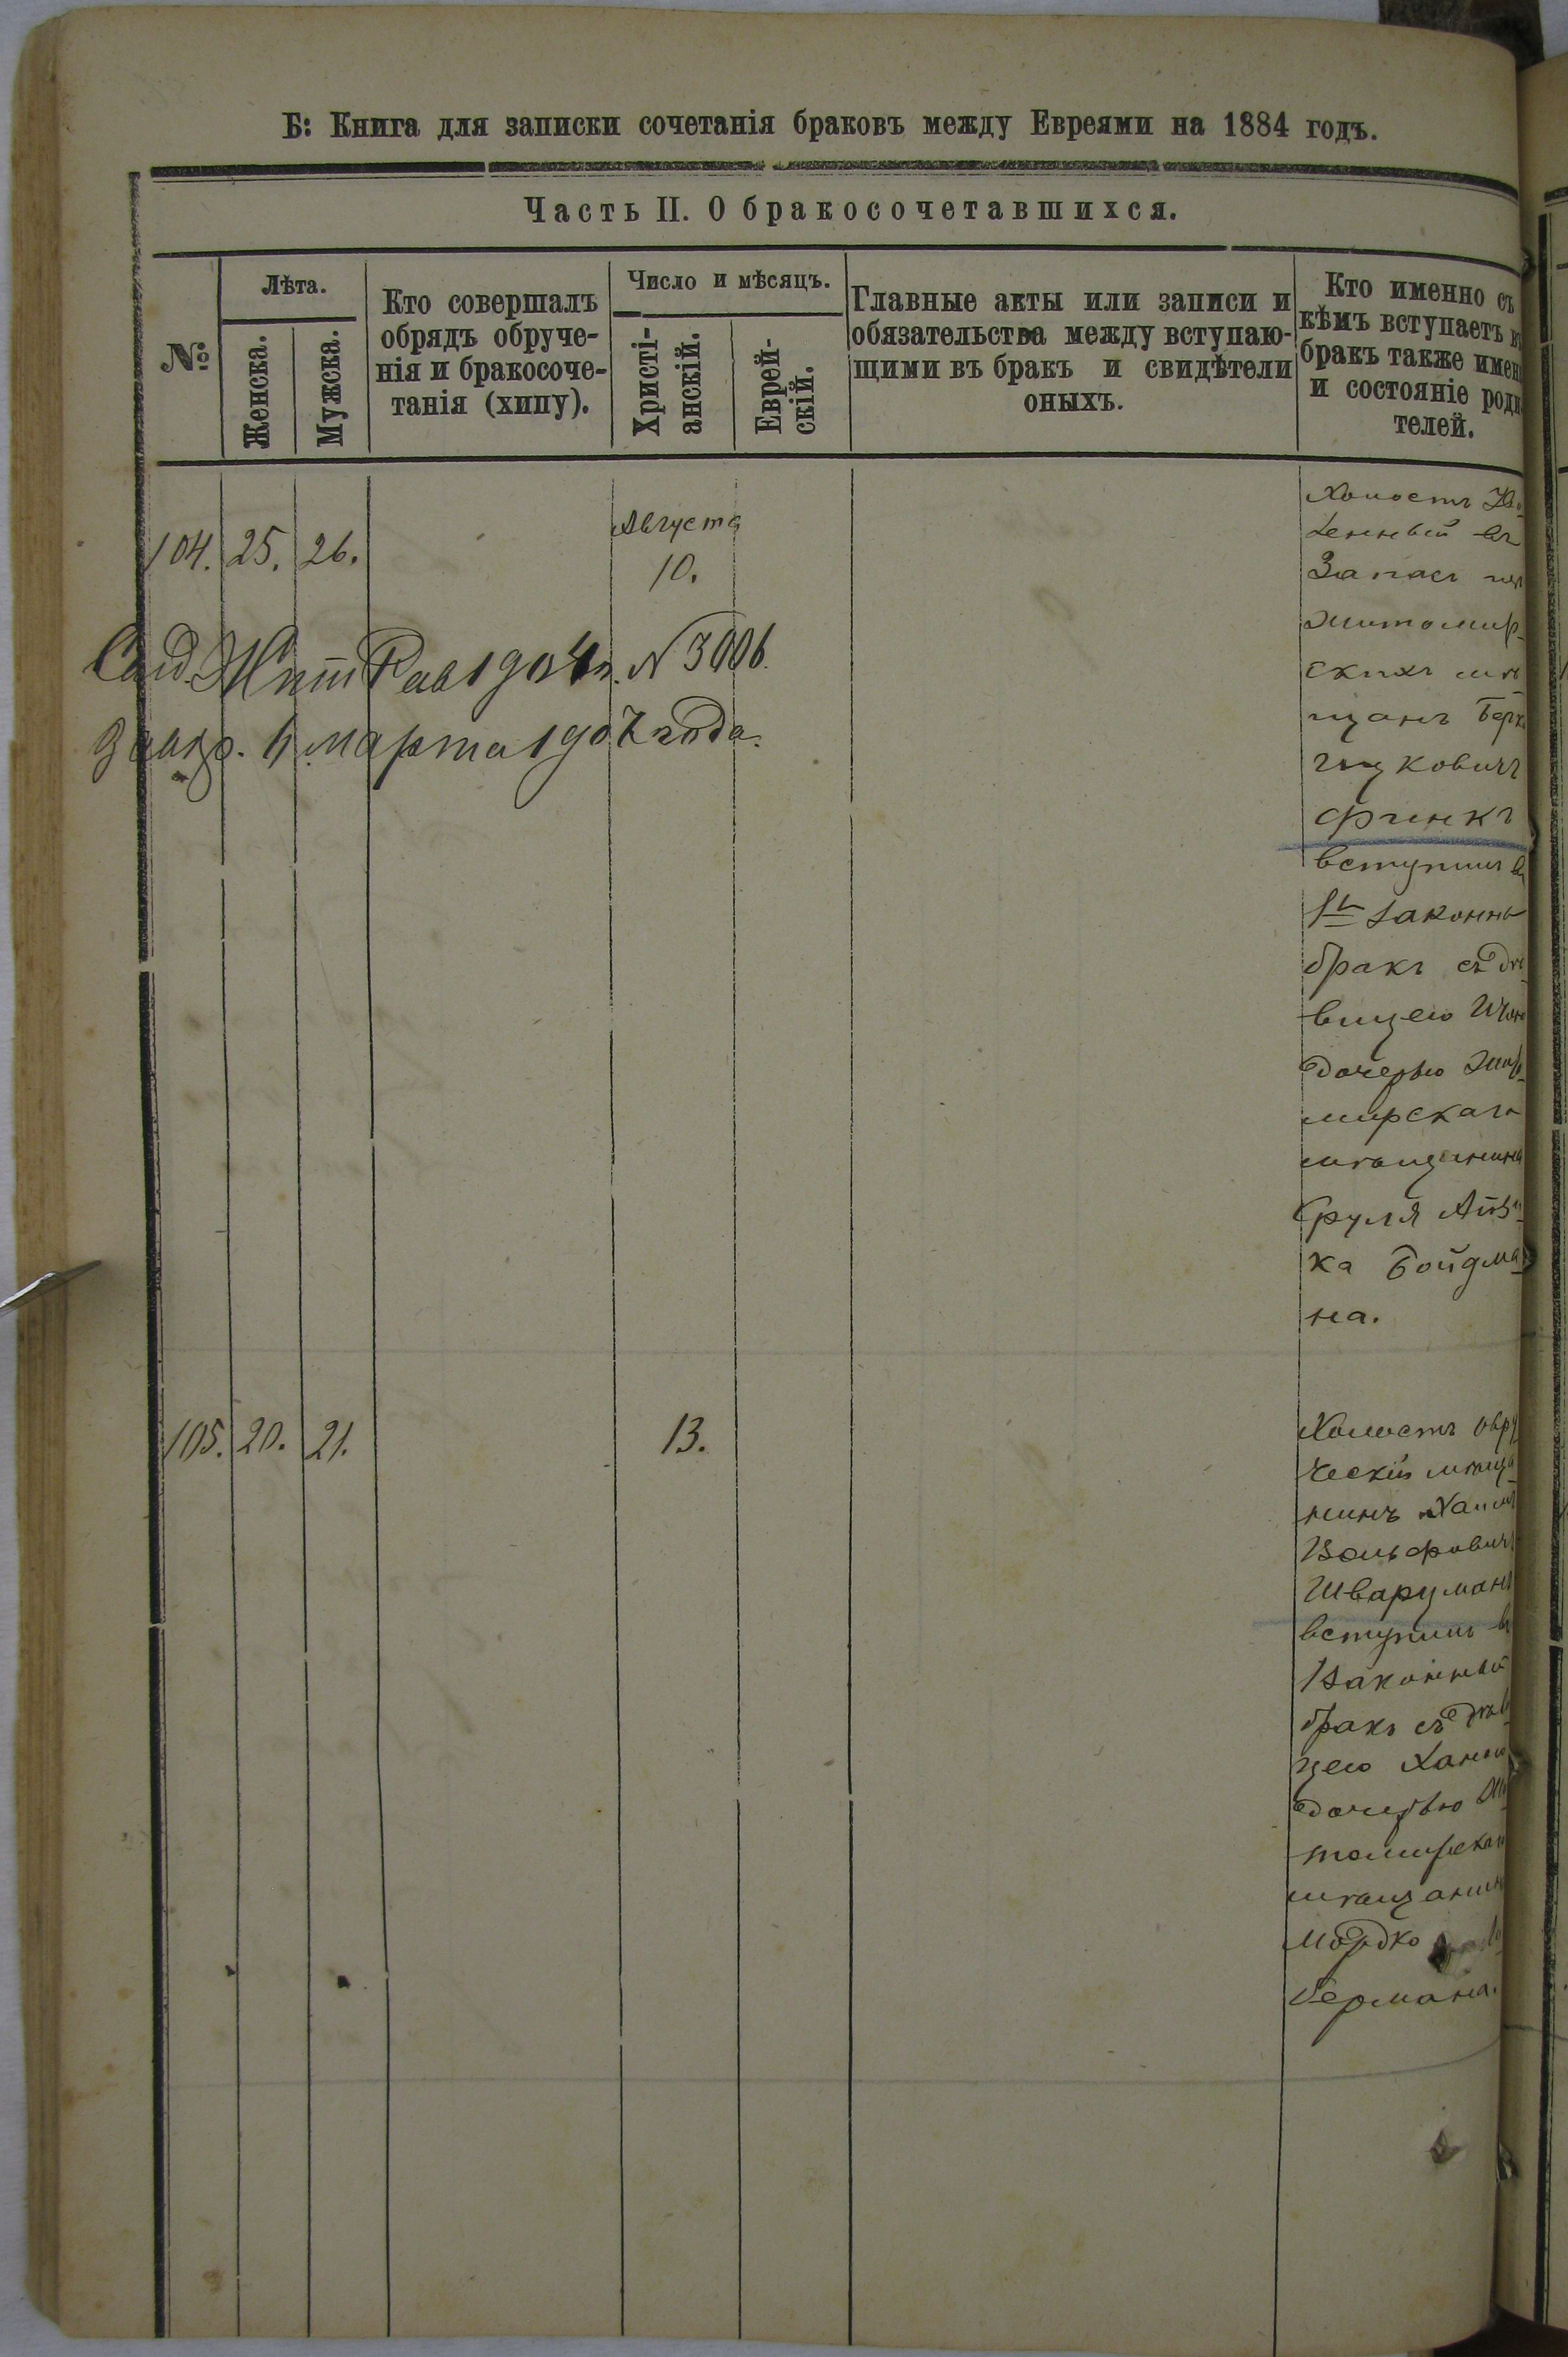 Б: Книга для записки сочетанія браковъ между Евреями на 1884 годъ.
Часть II. О бракосочетавшихся.
№
Лѣта.
Женска.
Мужска.
Кто совершалъ
обрядъ обруче-
нія и бракосоче-
танія (хипу).
Число и мѣсяцъ.
Христі-
анскій.
Еврей-
скій.
Главные акты или записи и
обязательства между вступаю-
щими въ бракъ и свидѣтели
оныхъ.
Кто именно съ
кѣмъ вступаетъ въ
бракъ также имен
и состояніе роди
телей.
104. 25. 26.
Августа
10.
Холостъ
ленный въ
Запасъ изъ
житомир-
скихъ мѣ-
щанъ Берко
Ицковичъ
Финкъ
вступилъ въ
1й законны
бракъ съ дѣ-
вицею
дочерью Жито-
мирскаго
мѣщанина
Сруля Айзи-
ка Бойдма-
на.
1904 г. № 3006
4 марта 1907 года.
105. 20. 21.
13.
Холостъ Овру
ческій мѣща-
нинъ Хаимъ
Вольфовичъ
Шварцманъ
вступилъ въ
1 законный
бракъ съ дѣви
цею Ханою
дочерью Жи-
томирскаго
мѣщанина
Мордко
Бермана.